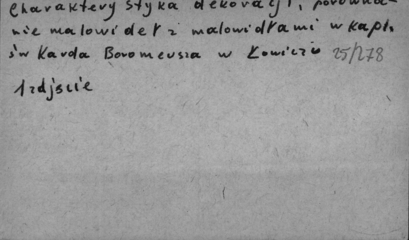 charakterystyka dekoracji, porówna-
nie malowideł z malowidłami w kapl.
św Karola Boromeusza w Łowiczu 25/278
1 zdjęcie